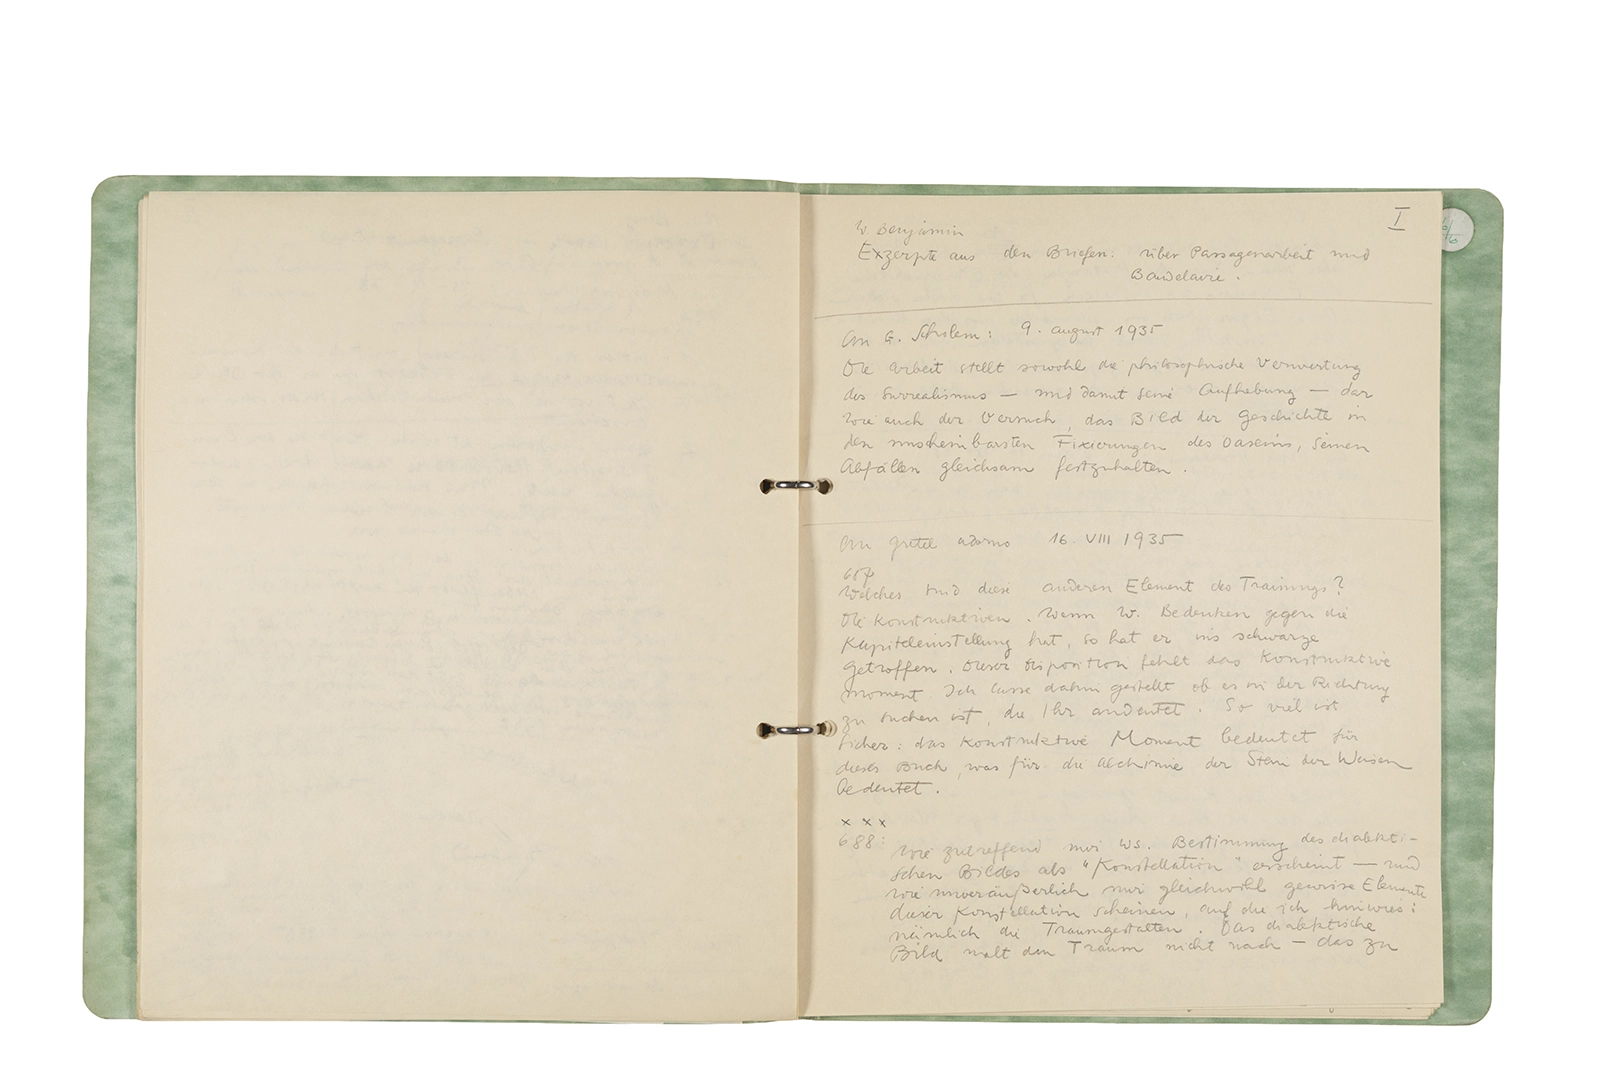 I
W. Benjamin
Exzerpte aus den Briefen: über Passagenarbeit und
Baudelaire.
An G. Scholem: 9. August 1935
Die Arbeit stellt sowohl die philosophische Verwertung
des Surrealismus — und damit seine Aufhebung — dar
wie auch der Versuch, das Bild der Geschichte in
den unscheinbarsten Fixierungen des Daseins, seinen
Abfällen gleichsam festzuhalten.
An Gretel Adorno 16. VIII 1935
687
Welches sind diese anderen Element des Trainings?
Die Konstruktiven. Wenn W. Bedenken gegen die
Kapiteleinstellung hat, so hat er ins schwarze
getroffen. Dieser Disposition fehlt das Konstruktive
Moment. Ich lasse dahin gestellt ob es in der Richtung
zu suchen ist, die Ihr andeutet. So viel ist
sicher: das Konstruktive Moment bedeutet für
dieses Buch, was für die Alchimie der Stein der Weisen
bedeutet.
x x x
688: Wie zutreffend mir Ws. Bestimmung des dialekti-
schen Bildes als "Konstellation" erscheint — und
wie unveräußerlich mir gleichwohl gewisse Elemente
dieser Konstellation scheinen, auf die ich hinwies:
nämlich die Traumgestalten. Das dialektische
Bild malt den Traum nicht nach — das zu